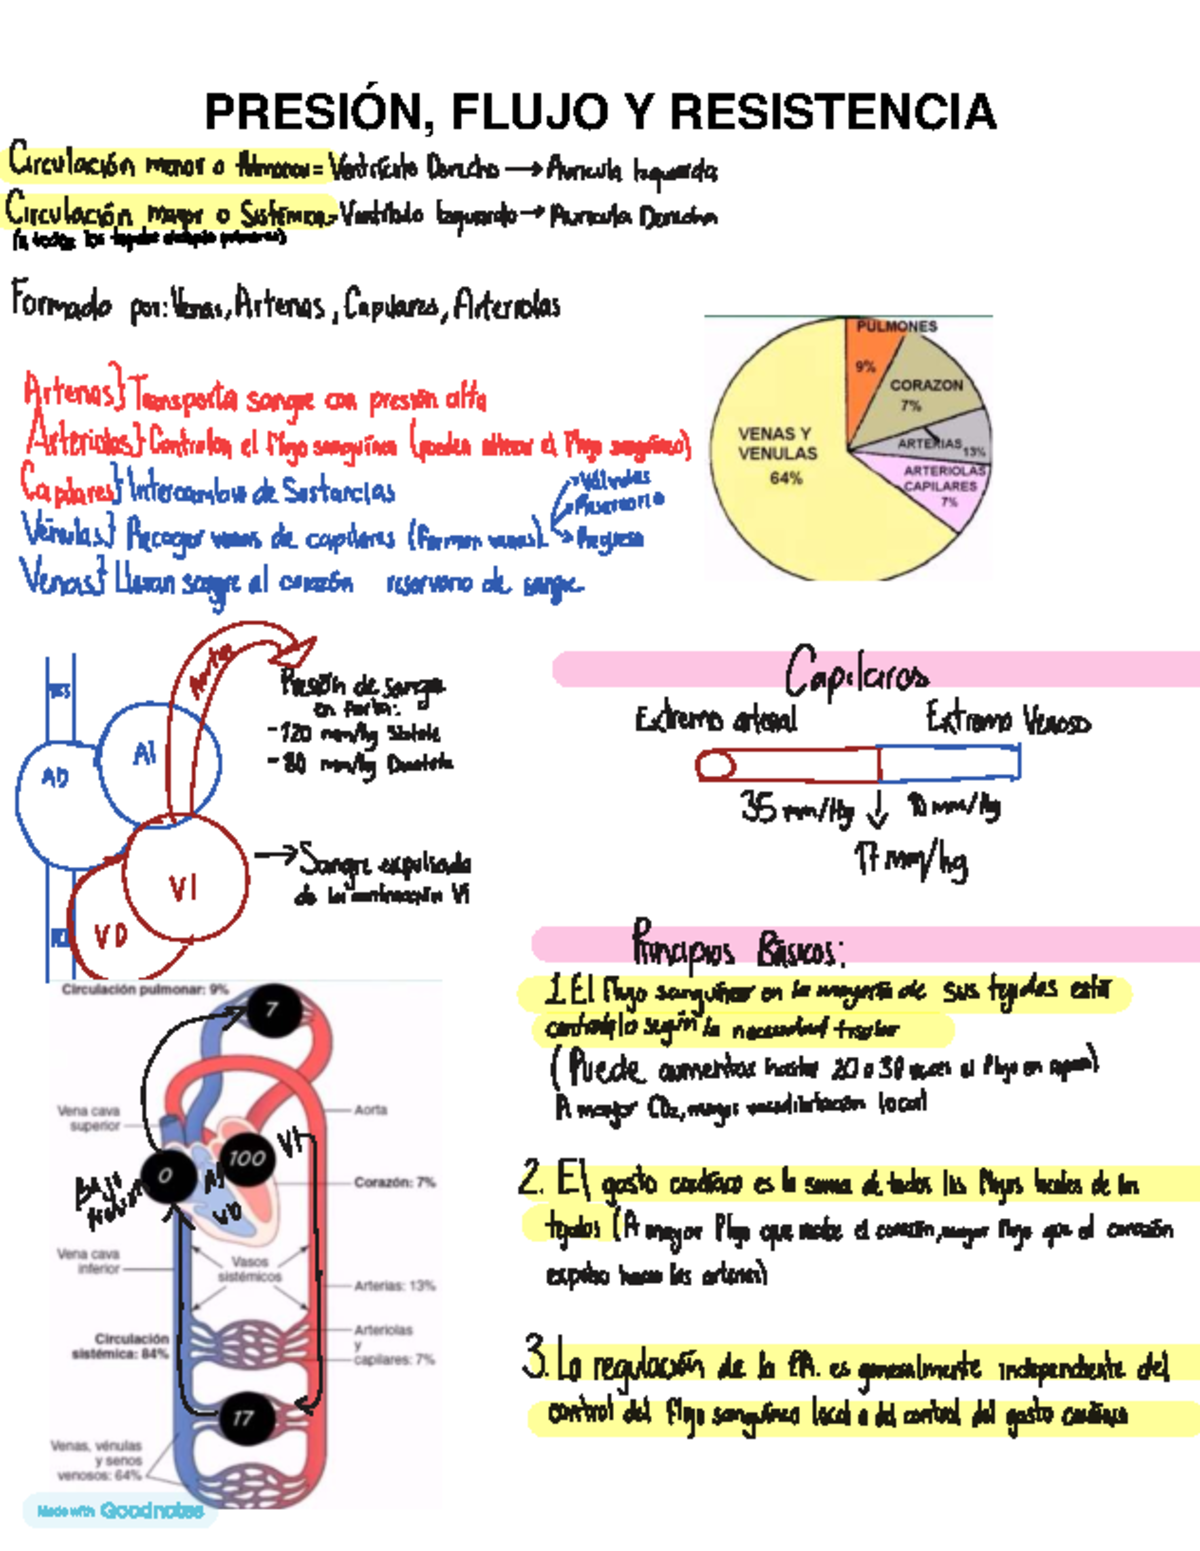 PRESIÓN, FLUJO Y RESISTENCIA
Circulación menor o Pulmonar = Ventrículo Derecho → Auricula Izquierda
Circulación mayor o Sistémica = Ventrículo Izquierdo → Auricula Derecha
(a todos los tejidos
Formado por: Venas, Arterias, Capilares, Arteriolas
Arterias} Transporta sangre con presión alta
Arteriolas} Controlan el Flujo sanguíneo (pueden alterar el Flujo sanguíneo)
Capilares} Intercambio de Sustancias
Vénulas} Recoger venas de capilares (Forman venas)
Válvulas
Reservorio
Regreso
Venas} Llevan sangre al corazón reservorio de sangre
PULMONES
9%
CORAZON
7%
ARTERIAS 13%
ARTERIOLAS
CAPILARES
7%
VENAS Y
VENULAS
64%
Aorta
AI
AD
VI
VD
Presión de sangre
en Aorta:
-120 mm/hg Sístole
-80 mm/hg Diastole
→ Sangre expulsada
de la contracción VI
Capilares
Extremo arterial
Extremo Venoso
35 mm/Hg ↓ 10 mm/Hg
17 mm/hg
Principios Básicos:
1. El Flujo sanguíneo en la mayoría de sus tejidos está
controlado según la necesidad tisular
(Puede aumentar hasta 20 o 30 veces el Flujo en reposo)
A mayor CO2, mayor vasodilatación local
2. El gasto cardíaco es la suma de todos los Flujos locales de los
tejidos (A mayor Flujo que recibe el corazón, mayor Flujo que el corazón
expulse hacia las arterias)
3. La regulación de la PA. es generalmente independiente del
control del Flujo sanguíneo local o del control del gasto cardíaco
Circulación pulmonar: 9%
7
Vena cava
superior
Aorta
VI
100
0
AI
VD
Bajo
Corazón: 7%
Vena cava
inferior
Vasos
sistémicos
Arterias: 13%
Circulación
sistémica: 84%
Arteriolas
y
capilares: 7%
17
Venas, vénulas
y senos
venosos: 64%
Made with Goodnotes